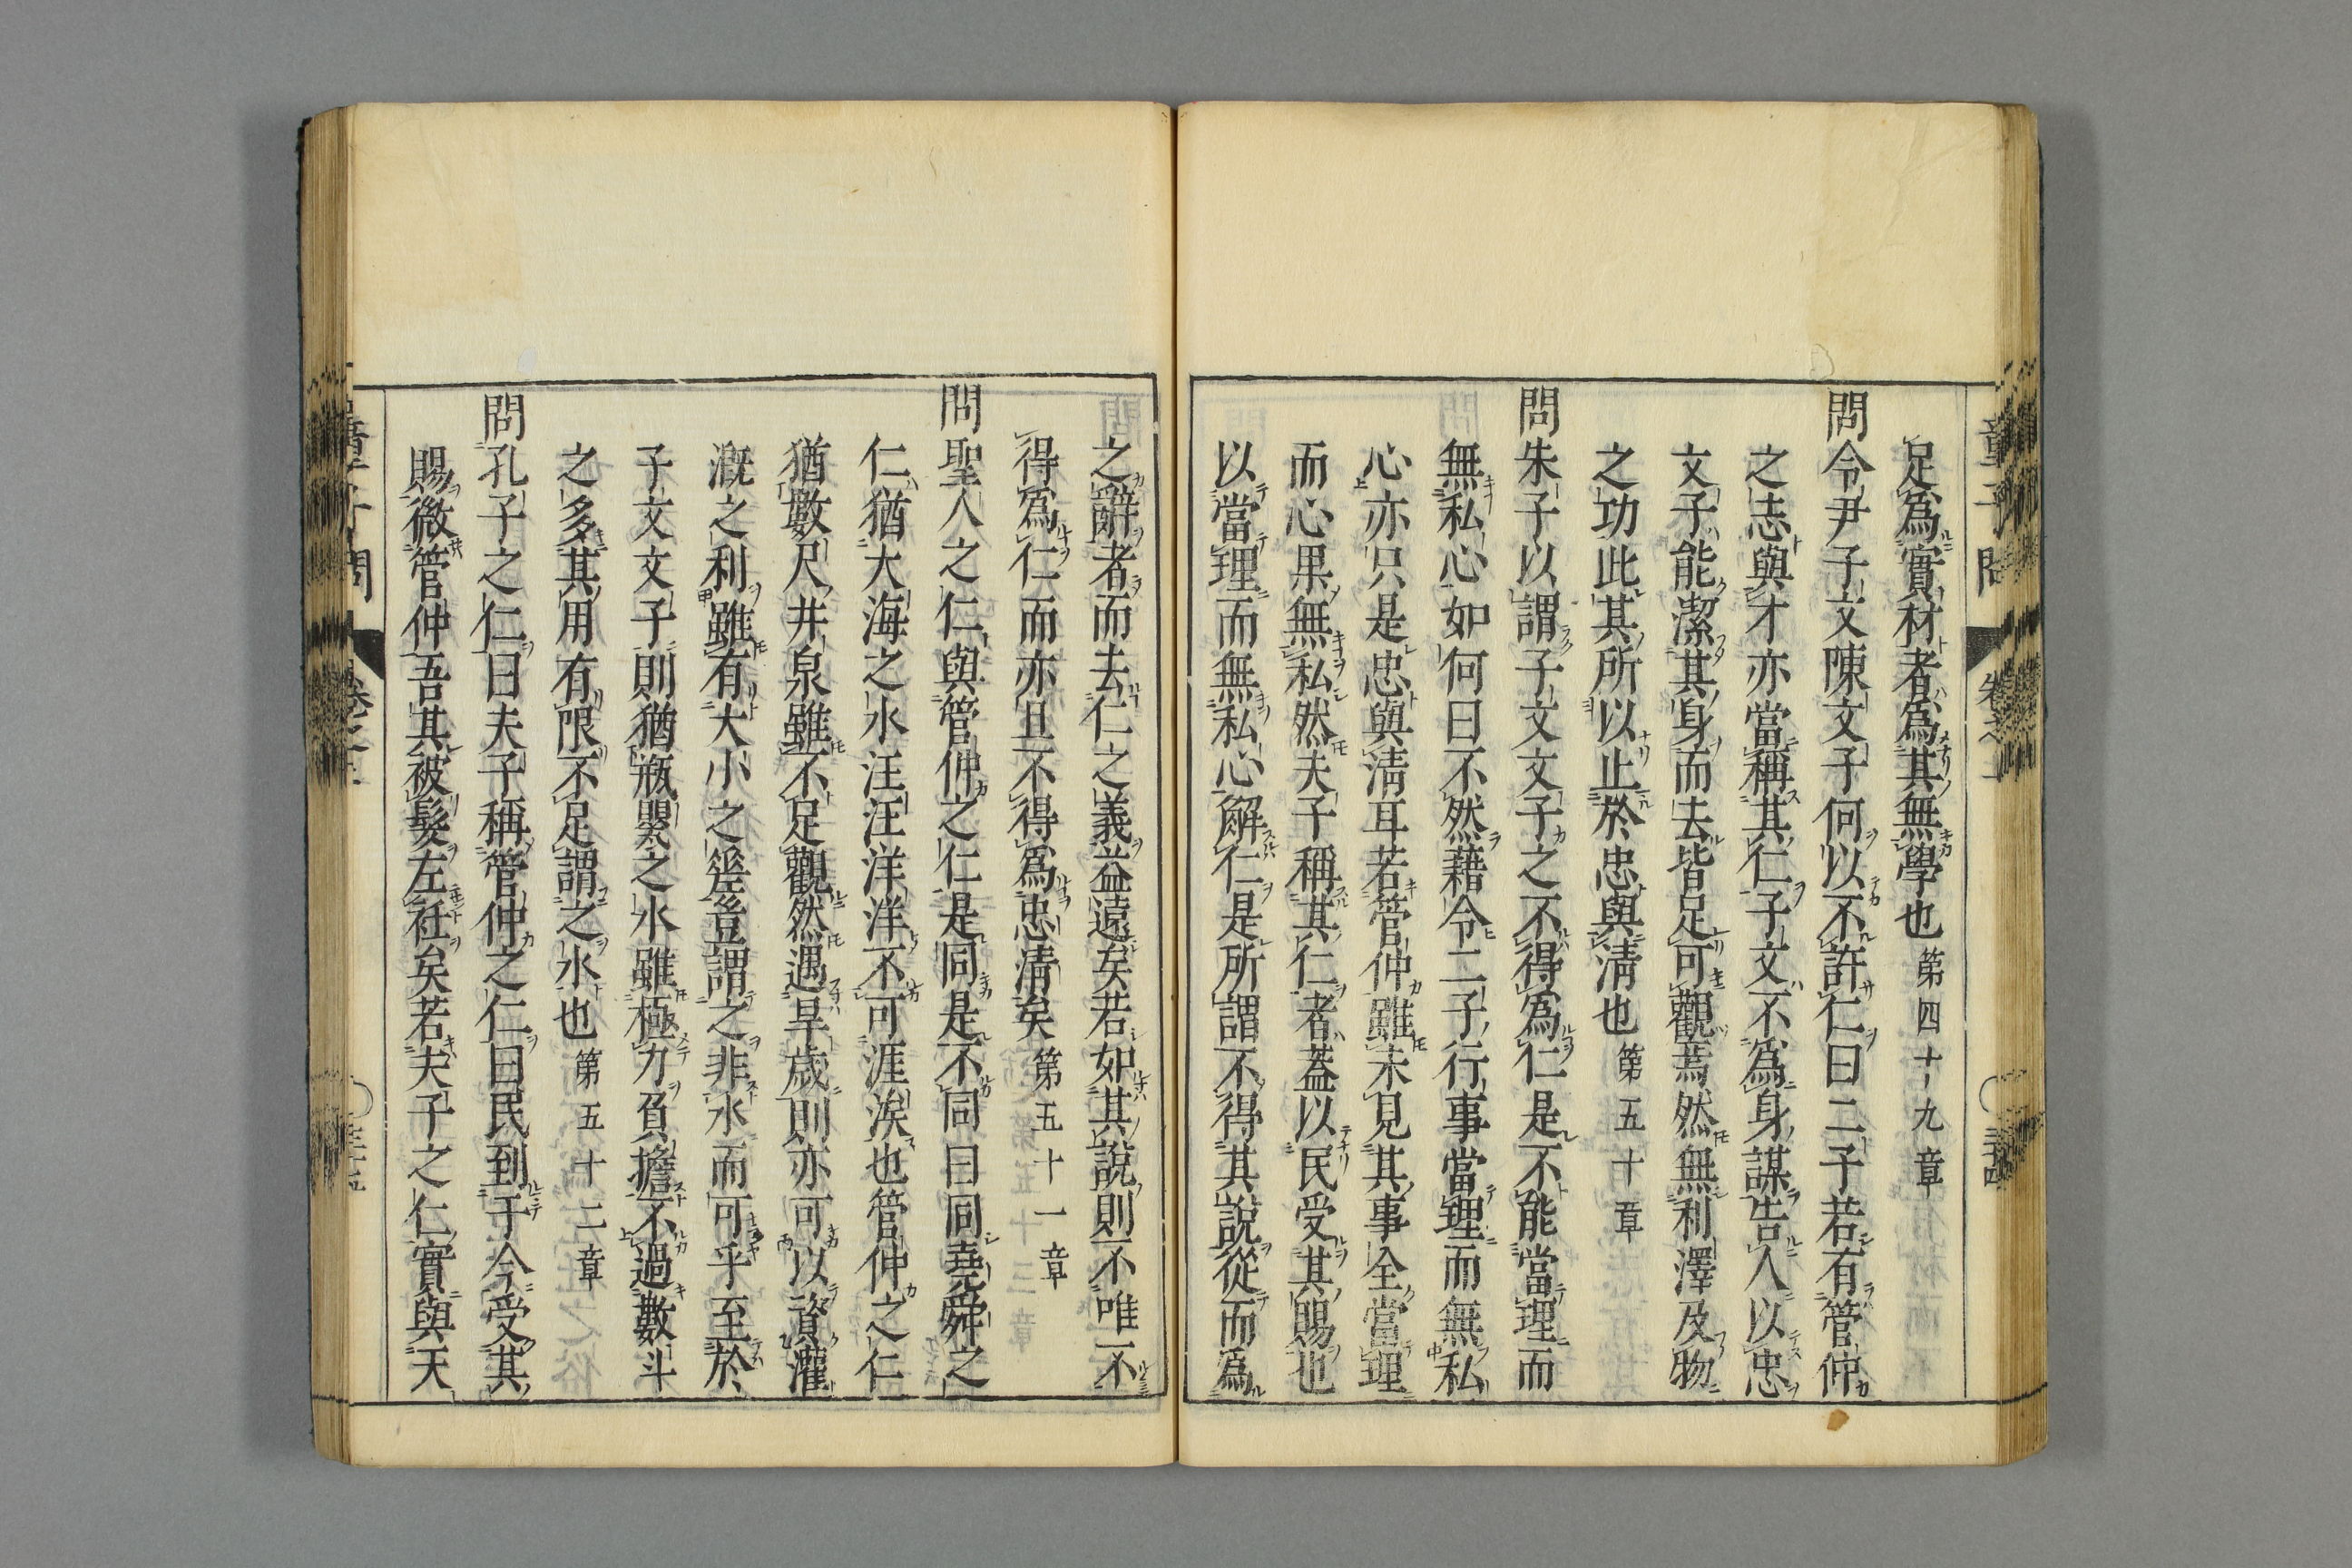 童子問 卷之上
足爲實材者爲其無學也 第四十九章
問令尹子文陳文子何以不許仁曰二子若有管仲
之志與才亦當稱其仁子文不爲身謀告人以忠
文子能潔其身而去皆足可觀焉然無利澤及物
之功此其所以止於忠與淸也 第五十章
問朱子以謂子文文子之不得爲仁是不能當理而
無私心如何曰不然藉令二子行事當理而無私
心亦只是忠與淸耳若管仲雖未見其事全當理
而心果無私然夫子稱其仁者蓋以民受其賜也
以當理而無私心解仁是所謂不得其說從而爲
之辭者而去仁之義益遠矣若如其說則不唯不
得爲仁而亦且不得爲忠淸矣 第五十一章
問聖人之仁與管仲之仁是同是不同曰同堯舜之
仁猶大海之水汪汪洋洋不可涯涘也管仲之仁
猶數尺井泉雖不足觀然遇旱歲則亦可以資灌
漑之利雖有大小之差豈謂之非水而可乎至於
子文文子則猶瓶罌之水雖極力負擔不過數斗
之多其用有限不足謂之水也 第五十二章
問孔子之仁曰夫子稱管仲之仁曰民到于今受其
賜微管仲吾其被髮左衽矣若夫子之仁實與天
童子問 卷之上